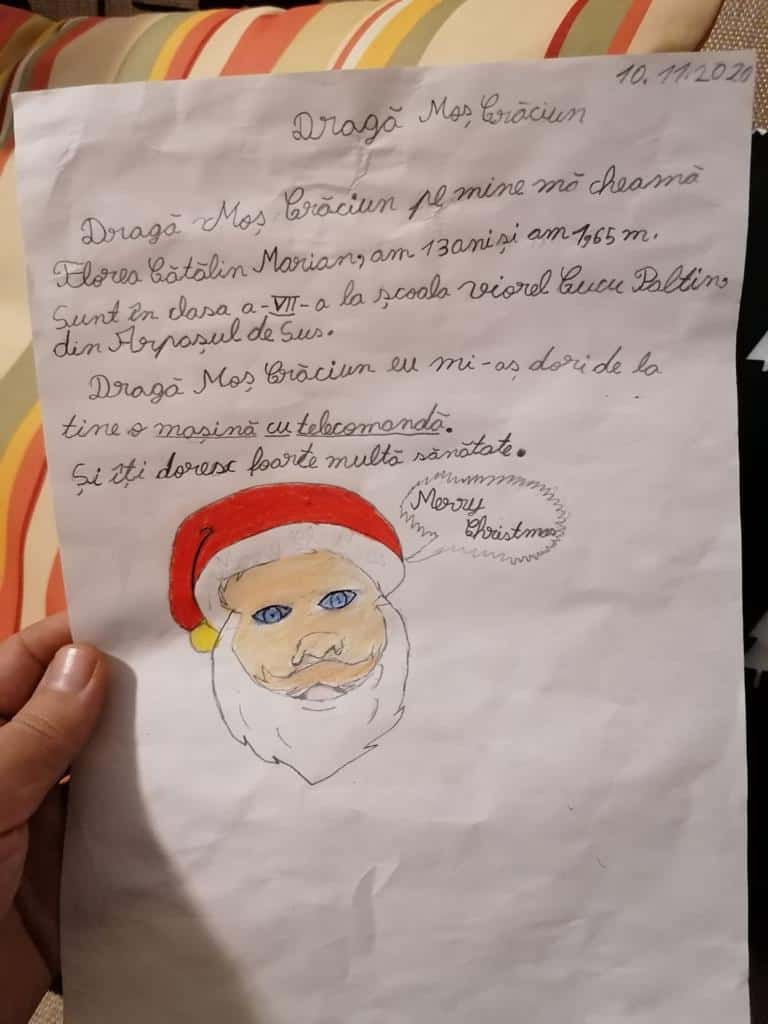 10.11.2020
Dragă Moș Crăciun
Dragă Moș Crăciun pe mine mă cheamă
Florea Cătălin Marian, am 13 ani și am 1,65 m.
Sunt în clasa a-VII-a la școala Viorel Cucu Paltin,
din Arpașul de Sus.
Dragă Moș Crăciun eu mi-aș dori de la
tine o mașină cu telecomandă.
Și îți doresc foarte multă sănătate.
Merry
Christmas